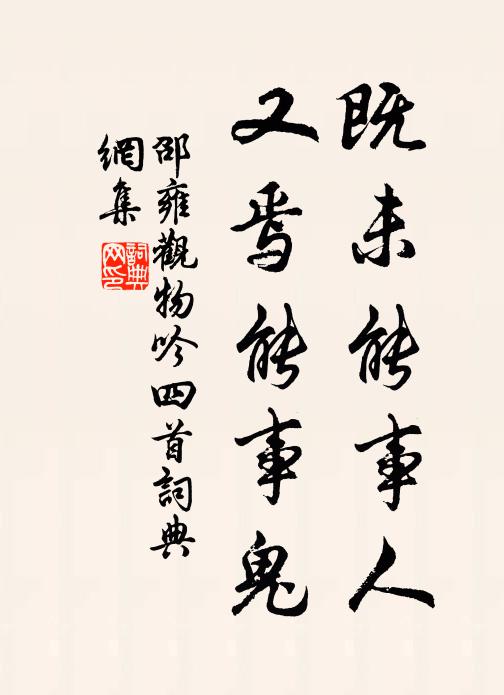 既未能事人
又焉能事鬼
邵雍觀物吟四首詞典
網集
詞典
网印